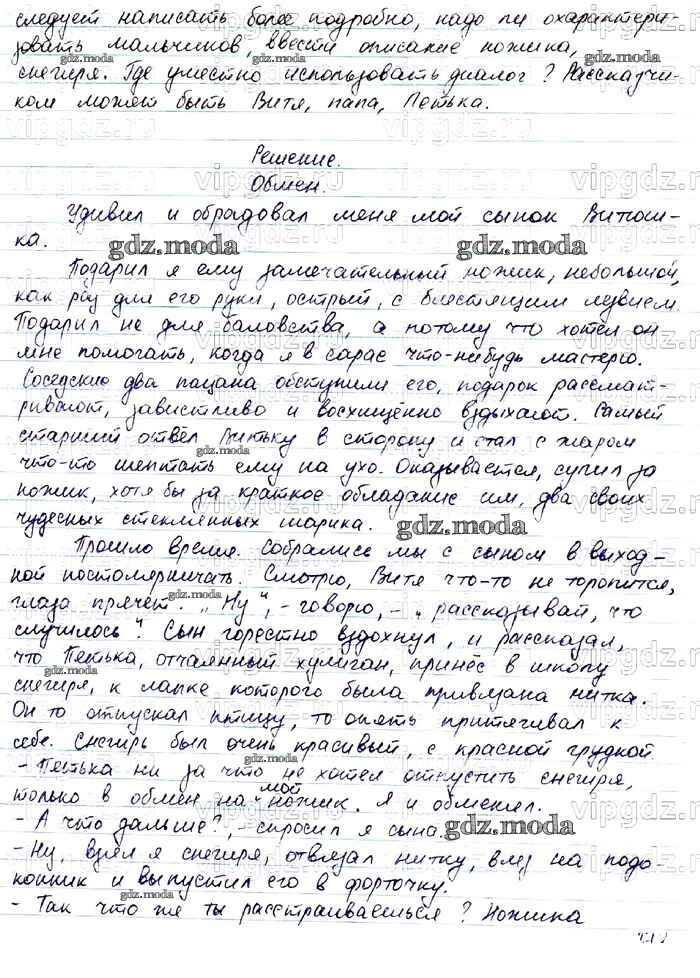 следует написать более подробно, надо ли охарактери-
зовать мальчиков, ввести описание ножика,
снегиря. Где уместно использовать диалог? Рассказчи-
ком может быть Витя, папа, Петька.
Решение.
Обмен.
Удивил и обрадовал меня мой сынок Витюш-
ка.
Подарил я ему замечательный ножик, небольшой,
как раз для его руки, острый, с блестящим лезвием.
Подарил не для баловства, а потому что хотел он
мне помогать, когда я в сарае что-нибудь мастерю.
Соседские два пацана обступили его, подарок рассмат-
ривают, завистливо и восхищённо вздыхают. Самый
старший отвёл Витьку в сторону и стал с жаром
что-то шептать ему на ухо. Оказывается, сулил за
ножик, хотя бы за краткое обладание им, два своих
чудесных стеклянных шарика.
Прошло время. Собрались мы с сыном в выход-
ной постолярничать. Смотрю, Витя что-то не торопится,
глаза прячет. „Ну", - говорю, - „рассказывай, что
случилось". Сын горестно вздохнул, и рассказал,
что Петька, отчаянный хулиган, принёс в школу
снегиря, к лапке которого была привязана нитка.
Он то отпускал птицу, то опять притягивал к
себе. Снегирь был очень красивый, с красной грудкой
- Петька ни за что не хотел отпустить снегиря,
только в обмен на мой ножик. Я и обменял.
- А что дальше?, - спросил я сына.
- Ну, взял я снегиря, отвязал нитку, влез на подо-
конник и выпустил его в форточку.
- Так что же ты расстраиваешься? Ножика
gdz.moda
vipgdz.ru